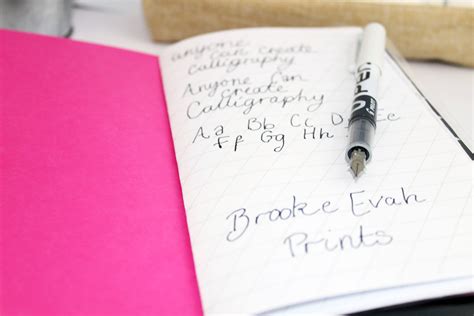 anyone
can create
calligraphy
Anyone Can
Create
Calligraphy
Aa Bb Cc
Ff Gg Hh
Brooke Evah
Prints
VPEN